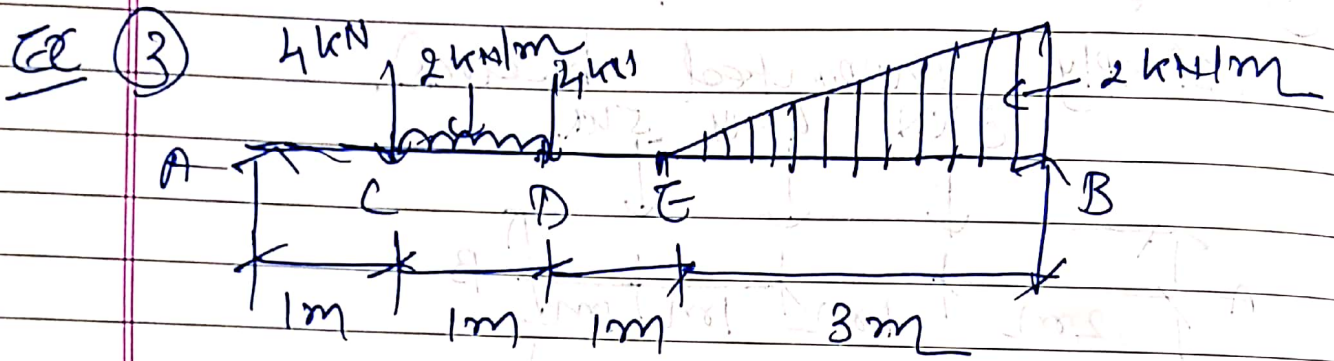 Ex 3
4 kN 2 kN/m 2 kN/m
A C D E B
1m 1m 1m 3m